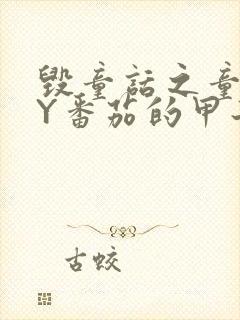 毁童话之童
Y番茄的甲
古蛟